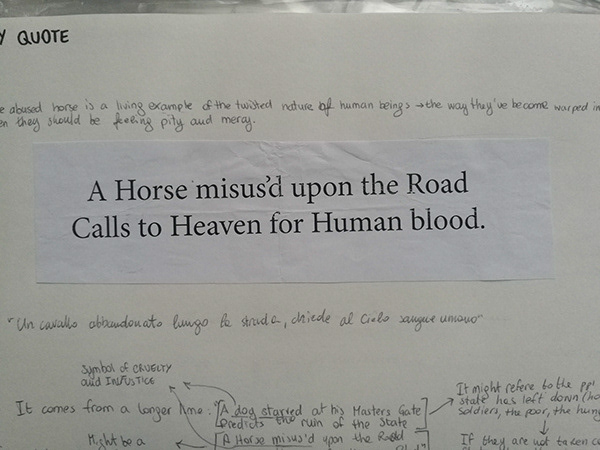 Y QUOTE
e abused horse is a living example of the twisted nature of human beings → the way they've become warped in
en they should be feeling pity and mercy.
A Horse misus'd upon the Road
Calls to Heaven for Human blood.
"Un cavallo abbandonato lungo la strada, chiede al Cielo sangue umano"
Symbol of CRUELTY
and INJUSTICE
It comes from a longer line: "[A dog starved at his Masters Gate
Predicts the ruin of the State
Might be a
[A Horse misus'd upon the Road
It might refere to the ppl
state has left down (ho
soldiers, the poor, the hung
If they are not taken c